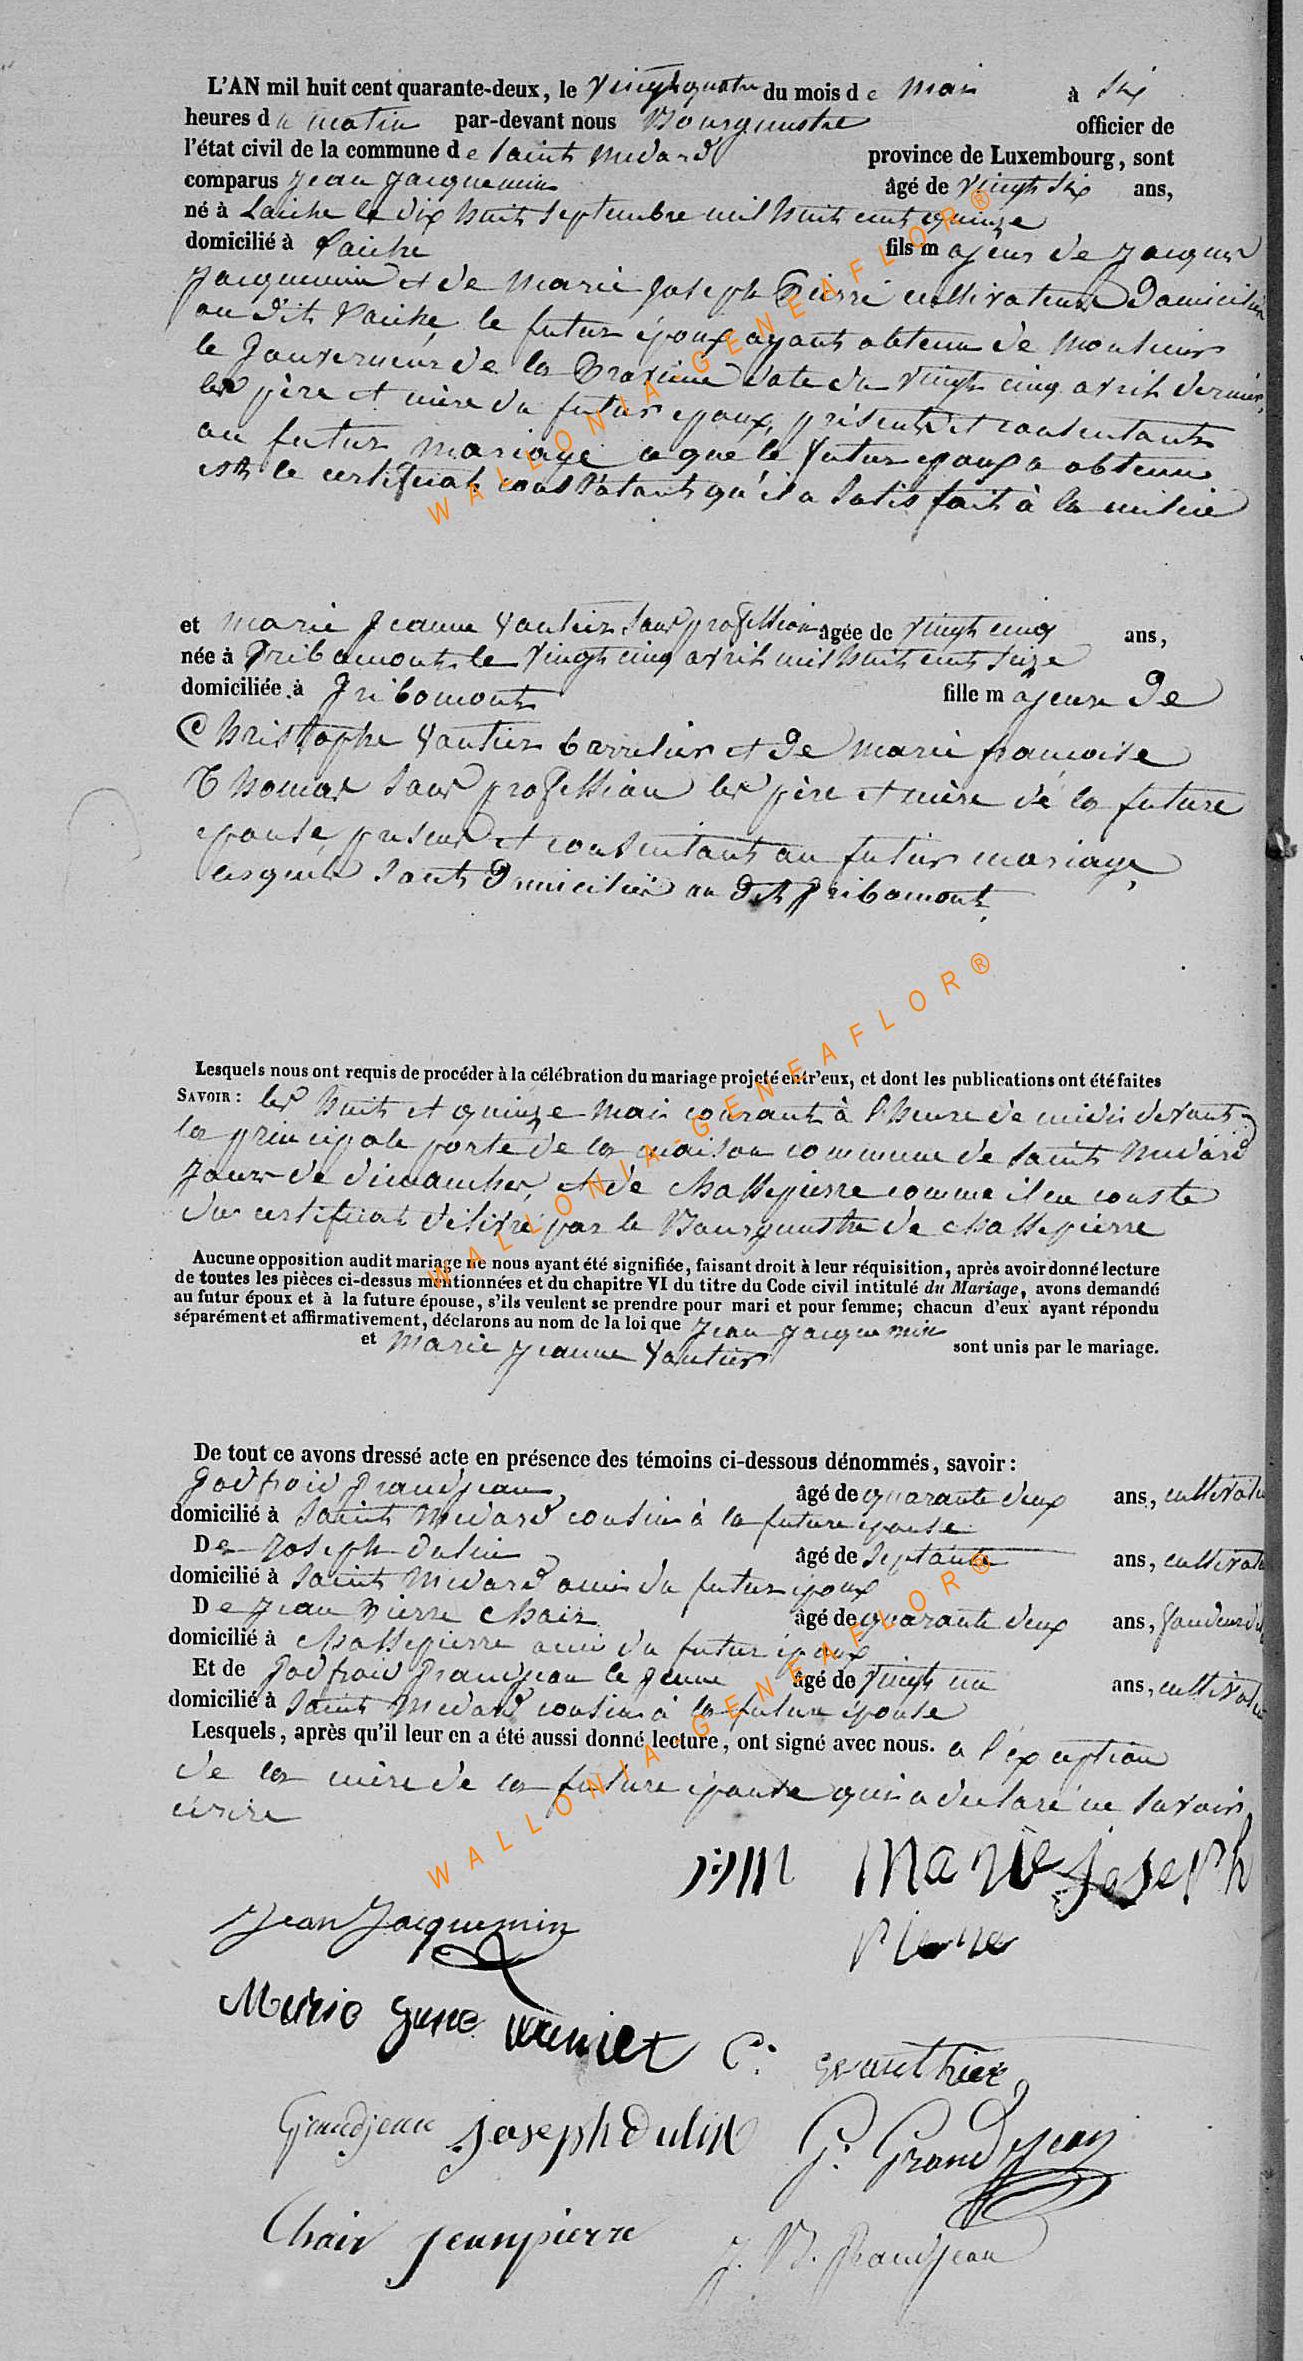 L'AN mil huit cent quarante-deux, le vingt quatre du mois de mai à six
heures du matin par-devant nous Bourgmestre officier de
l'état civil de la commune de Saint Médard province de Luxembourg, sont
comparus Jean Jacquemin âgé de vingt six ans,
né à Laiche le dix huit Septembre mil huit cent quinze
domicilié à Laiche fils majeur de Jacques
Jacquemin et de Marie Joseph Pierre cultivateurs Domiciliés
au dit Laiche, le futur époux ayant obtenu de Monsieur
le Gouverneur de la Province date du vingt cinq avril dernier,
les père et mère du futur epoux, présents et consentants
au futur mariage a que le futur epoux a obtenu
le certificat constatant qu'il a satisfait à la milice
et Marie Jeanne Vautier sans profession âgée de vingt cinq ans,
née à Gribomont le vingt cinq avril mil huit cent seize
domiciliée à Gribomont fille majeure De
Christophe Vautier et De Marie françoise
Thomas sans profession les père et mère de la future
epouse, presens et consentant au futur mariage,
lesquels sont Domiciliés au Dit Gribomont.
Lesquels nous ont requis de procéder à la célébration du mariage projeté entr'eux, et dont les publications ont été faites
SAVOIR : les huit et quinze mai courant à l'heure de midi devant
la principale porte de la maison commune de Saint Médard
jours de dimanches, et de Chassepierre comme il en conste
du certificat délivré par le Bourgmestre de Chassepierre
Aucune opposition audit mariage ne nous ayant été signifiée, faisant droit à leur réquisition, après avoir donné lecture
de toutes les pièces ci-dessus mentionnées et du chapitre VI du titre du Code civil intitulé du Mariage, avons demandé
au futur époux et à la future épouse, s'ils veulent se prendre pour mari et pour femme; chacun d'eux ayant répondu
séparément et affirmativement, déclarons au nom de la loi que Jean Jacquemin
et Marie Jeanne Vautier sont unis par le mariage.
De tout ce avons dressé acte en présence des témoins ci-dessous dénommés, savoir :
Godfroid Grandjean, âgé de quarante deux ans, cultivateur
domicilié à Saint Médard cousin à la future epouse
De Joseph Dulin âgé de Septante ans, cultivateur
domicilié à Saint Médard ami du futur époux
De Jean Pierre Chair âgé de quarante deux ans,
domicilié à Chassepierre ami du futur époux
Et de Godfroid Grandjean le jeune âgé de vingt un ans, cultivateur
domicilié à Saint Médard cousin à la future épouse
Lesquels, après qu'il leur en a été aussi donné lecture, ont signé avec nous. a l'exception
de la mère de la future épouse qui a déclaré ne savoir
écrire
Marie joseph
Jean Jacquemin Pierre
Marie Jene C: Gvauthier
Grandjean Joseph Dulin G. GrandJean
Chair jeanpierre J. B. Grandjean
WALLONIA-GENEAFLOR®
WALLONIA-GENEAFLOR®
WALLONIA-GENEAFLOR®